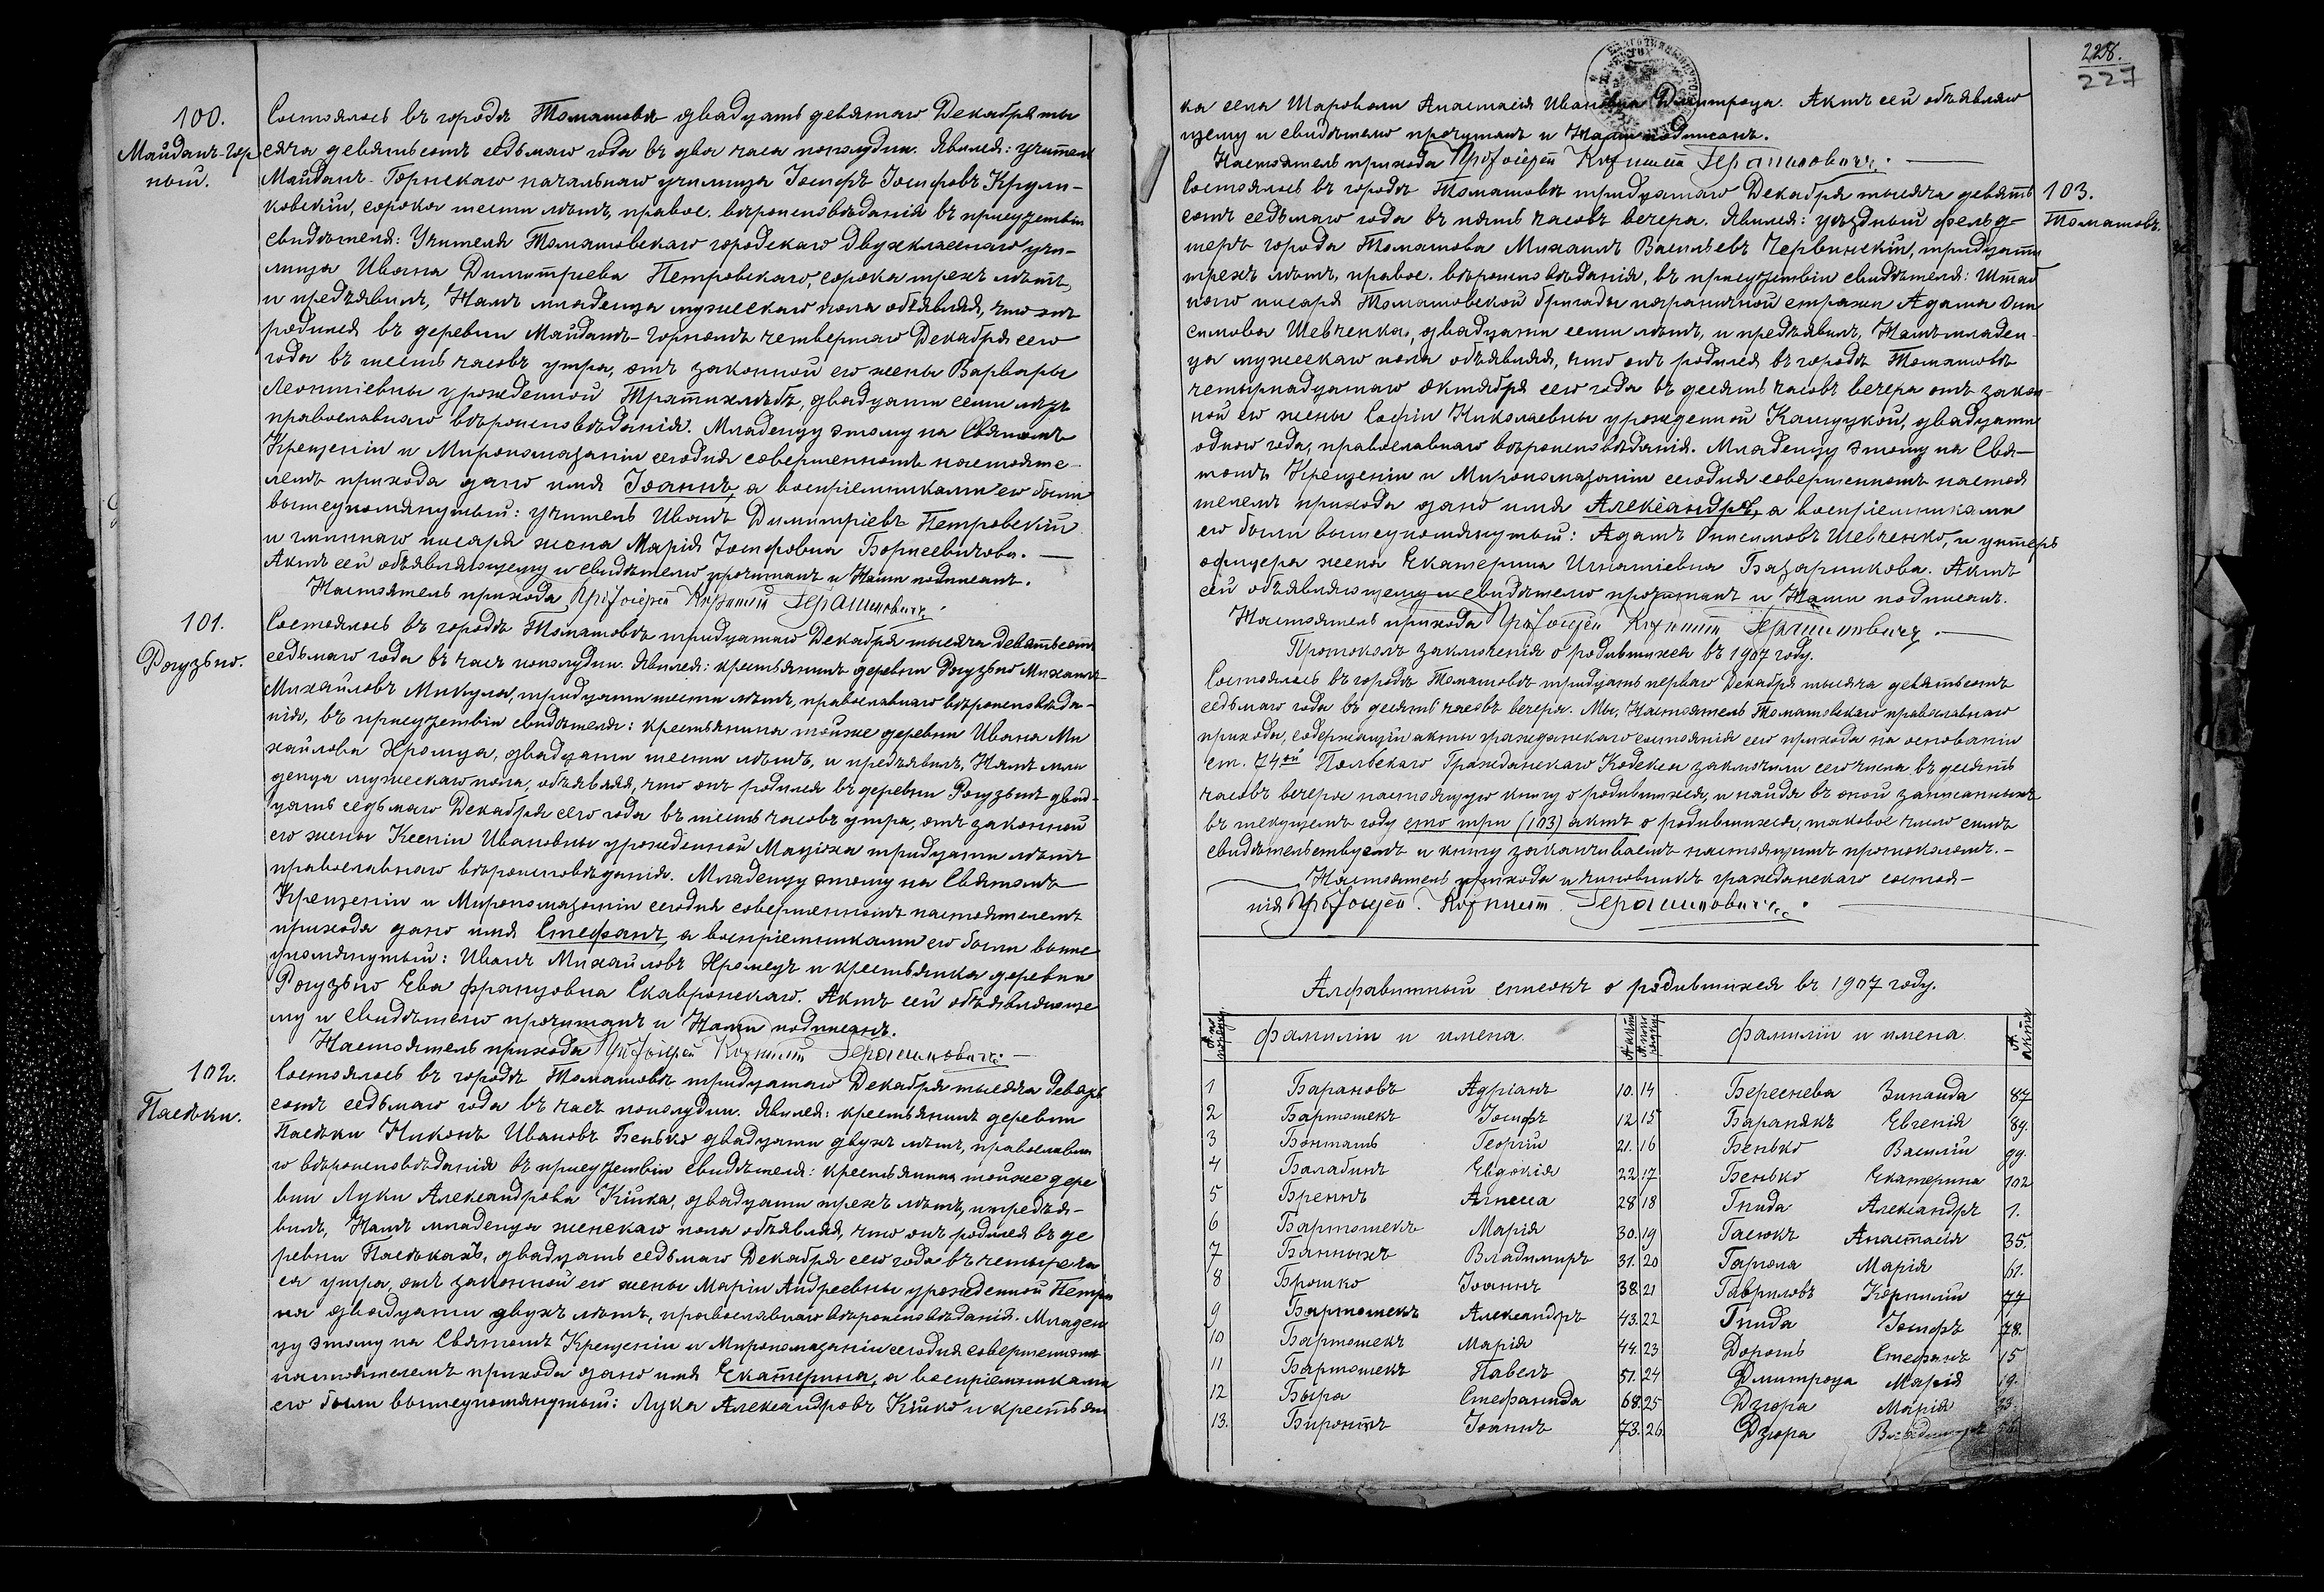 100.
Майданъ-Гор
ный.
Состоялось въ городѣ Томашовѣ двадцать девятаго Декабря ты
сяча девятьсотъ седьмаго года въ два часа пополудни. Явился: учитель
Майданъ-Горнскаго начальнаго училища Іосифъ Іосифовъ Крули-
ковскій, сорока шести лѣтъ, правос. вѣроисповѣданія въ присутствіи
свидѣтеля: Учителя Томашовскаго городскаго двухкласснаго учи-
лища Ивана Димитріева Петровскаго, сорока трехъ лѣтъ,
и предъявилъ, Намъ младенца мужескаго пола объявляя, что онъ
родился въ деревни Майданъ-Горномъ четвертаго Декабря сего
года въ шесть часовъ утра, отъ законной его жены Варвары
Леонтіевны урожденной двадцати семи лѣтъ
православнаго вѣроисповѣданія. Младенцу этому на Святомъ
Крещеніи и Миропомазаніи сегодня совершенномъ настояте-
лемъ прихода дано имя Іоаннъ, а воспріемниками его были
вышеупомянутый: учитель Иванъ Димитріевъ Петровскій
и гминнаго писаря жена Марія Іосифовна Борисевичова. —
Актъ сей объявляющему и свидѣтелю прочитанъ и Нами подписанъ.
Настоятель прихода Протоіерей Корнилій Герасимовичъ.
101.
Рогузьно.
Состоялось въ городѣ Томашовѣ тридцатаго Декабря тысяча девятьсотъ
седьмаго года въ часъ пополудни. Явился: крестьянинъ деревни Рогузьно Михаилъ
Михайловъ Микула, тридцати шести лѣтъ, православнаго вѣроисповѣда-
нія, въ присутствіи свидѣтеля: крестьянина тойже деревни Ивана Ми
хайлова Хромца, двадцати шести лѣтъ, и предъявилъ, Намъ мла
денца мужескаго пола, объявляя, что онъ родился въ деревни Рогузьнѣ двад-
цать седьмаго Декабря сего года въ шесть часовъ утра, отъ законной
его жены Ксеніи Ивановны урожденной Мацюха тридцати лѣтъ
православнаго вѣроисповѣданія. Младенцу этому на Святомъ
Крещеніи и Миропомазаніи сегодня совершенномъ настоятелемъ
прихода дано имя Стефанъ, а воспріемниками его были выше
упомянутый: Иванъ Михайловъ Хромецъ и крестьянка деревни
Рогузьно Ева Францовна Скавронскаго. Актъ сей объявляюще
му и свидѣтелю прочитанъ и Нами подписанъ.
Настоятель прихода Протоіерей Корнилій Герасимовичъ. —
102.
Пасѣки.
Состоялось въ городѣ Томашовѣ тридцатаго Декабря тысяча девять
сотъ седьмаго года въ часъ пополудни. Явился: крестьянинъ деревни
Пасѣки Никонъ Ивановъ Бенько двадцати двухъ лѣтъ, православна
го вѣроисповѣданія въ присутствіи свидѣтеля: крестьянина тойже дере
вни Луки Александрова Кійка, двадцати трехъ лѣтъ, и предъя-
вилъ, Намъ младенца женскаго пола объявляя, что онъ родился въ де
ревни Пасѣкахъ, двадцать седьмаго Декабря сего года въ четыре ча
са утра, отъ законной его жены Маріи Андреевны урожденной
на двадцати двухъ лѣтъ, православнаго вѣроисповѣданія. Младен
цу этому на Святомъ Крещеніи и Миропомазаніи сегодня совершенномъ
настоятелемъ прихода дано имя Екатерина, а воспріемниками
его были вышеупомянутый: Лука Александровъ Кійко и крестьян
228.
227
ка села Шароволи Анастасія Ивановна Дмитроца. Актъ сей объявляю
щему и свидѣтелю прочитанъ и Нами подписанъ.
Настоятель прихода Протоіерей Корнилій Герасимовичъ. —
103.
Томашовъ.
Состоялось въ городѣ Томашовѣ тридцатаго Декабря тысяча девять
сотъ седьмаго года въ пять часовъ вечера. Явился: уѣздный фельд-
шеръ города Томашова Михаилъ Васильевъ Червинскій, тридцати
трехъ лѣтъ, правос. вѣроисповѣданія, въ присутствіи свидѣтеля: Штаб
ного писаря Томашовской бригады пограничной стражи Адама Они
симова Шевченка, двадцати семи лѣтъ, и предъявилъ, Намъ младен-
ца мужескаго пола объявляя, что онъ родился въ городѣ Томашовѣ
четырнадцатаго Октября сего года въ десять часовъ вечера отъ закон-
ной его жены Софіи Николаевны урожденной Кашуцкой, двадцати
одного года, православнаго вѣроисповѣданія. Младенцу этому на Свя-
томъ Крещеніи и Миропомазаніи сегодня совершенномъ настоя
телемъ прихода дано имя Александръ, а воспріемниками
его были вышеупомянутый: Адамъ Онисимовъ Шевченко, и унтеръ
офицера жена Екатерина Игнатіевна Базарникова. Актъ
сей объявляющему и свидѣтелю прочитанъ и Нами подписанъ.
Настоятель прихода Протоіерей Корнилій Герасимовичъ. —
Протоколъ заключенія о родившихся въ 1907 году.
Состоялось въ городѣ Томашовѣ тридцать перваго Декабря тысяча девятьсотъ
седьмаго года въ десять часовъ вечера. Мы, Настоятель Томашовскаго православнаго
прихода, содержащій акты гражданскаго состоянія сего прихода на основаніи
ст. 74ой Польскаго Гражданскаго Кодекса заключили сего числа въ десять
часовъ вечера настоящую книгу о родившихся, и найдя въ оной записанныхъ
въ текущемъ году сто три (103) актъ о родившихся, таковое число симъ
свидѣтельствуемъ и книгу заканчиваемъ настоящимъ протоколомъ. —
Настоятель прихода и чиновникъ гражданскаго состоя-
нія Протоіерей Корнилій Герасимовичъ.
Алфавитный списокъ о родившихся въ 1907 году.
Фамиліи и имена. № акта Фамиліи и имена. № акта
1 Барановъ Адріанъ 10. 14 Береснева Зинаида 87
2 Бартошекъ Іосифъ 12 15 Баранякъ Евгенія 89.
3 Бонташъ Георгій 21. 16 Бенько Василій 99.
4 Балабинъ Евдокія 22 17 Бенько Екатерина 102
5 Бреннъ Агнеса 28 18 Гнида Александръ 1.
6 Бартошекъ Марія 30. 19 Гасюкъ Анастасія 35.
7 Банныхъ Владимиръ 31. 20 Гарюла Марія 61.
8 Брошко Іоаннъ 38 21 Гавриловъ Корнилій 77
9 Бартошекъ Александръ 43. 22 Гнида Іосифъ 78.
10 Бартошекъ Марія 44. 23 Дорошъ Стефанъ 15
11 Бартошекъ Павелъ 51. 24 Дмитроца Марія 19.
12 Быра Стефанида 68. 25 Дзюра Марія 33.
13. Биронтъ Іоаннъ 73. 26. Дзюра Владимиръ